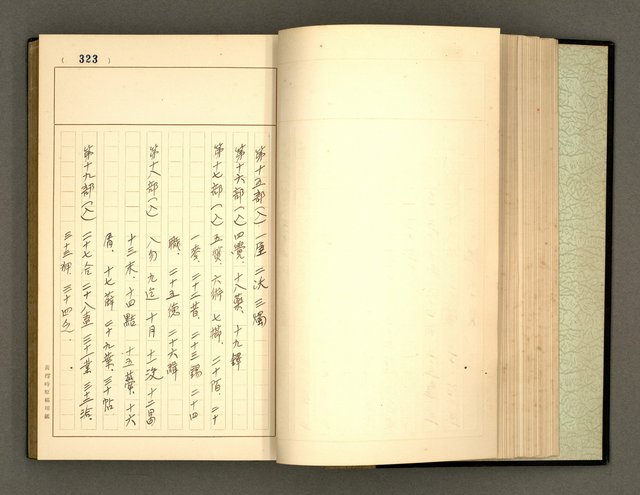 ( 323 )
第十五部(入)一屋 二沃 三燭
第十六部(入)四覺、十八藥、十九鐸
第十七部(入)五質、六術 七櫛、二十陌、二十
一麥、二十二昔 二十三錫 二十四
職、二十五德 二十六緝
第十八部(入)八勿 九迄 十月 十一沒 十二曷
十三末、十四黠 十五
十六
屑、十七薛 二十九葉、三十帖
第十九部(入)二十七合 二十八盍 三十一業 三十二洽、
三十三狎、三十四乏、
黃得時原稿用紙